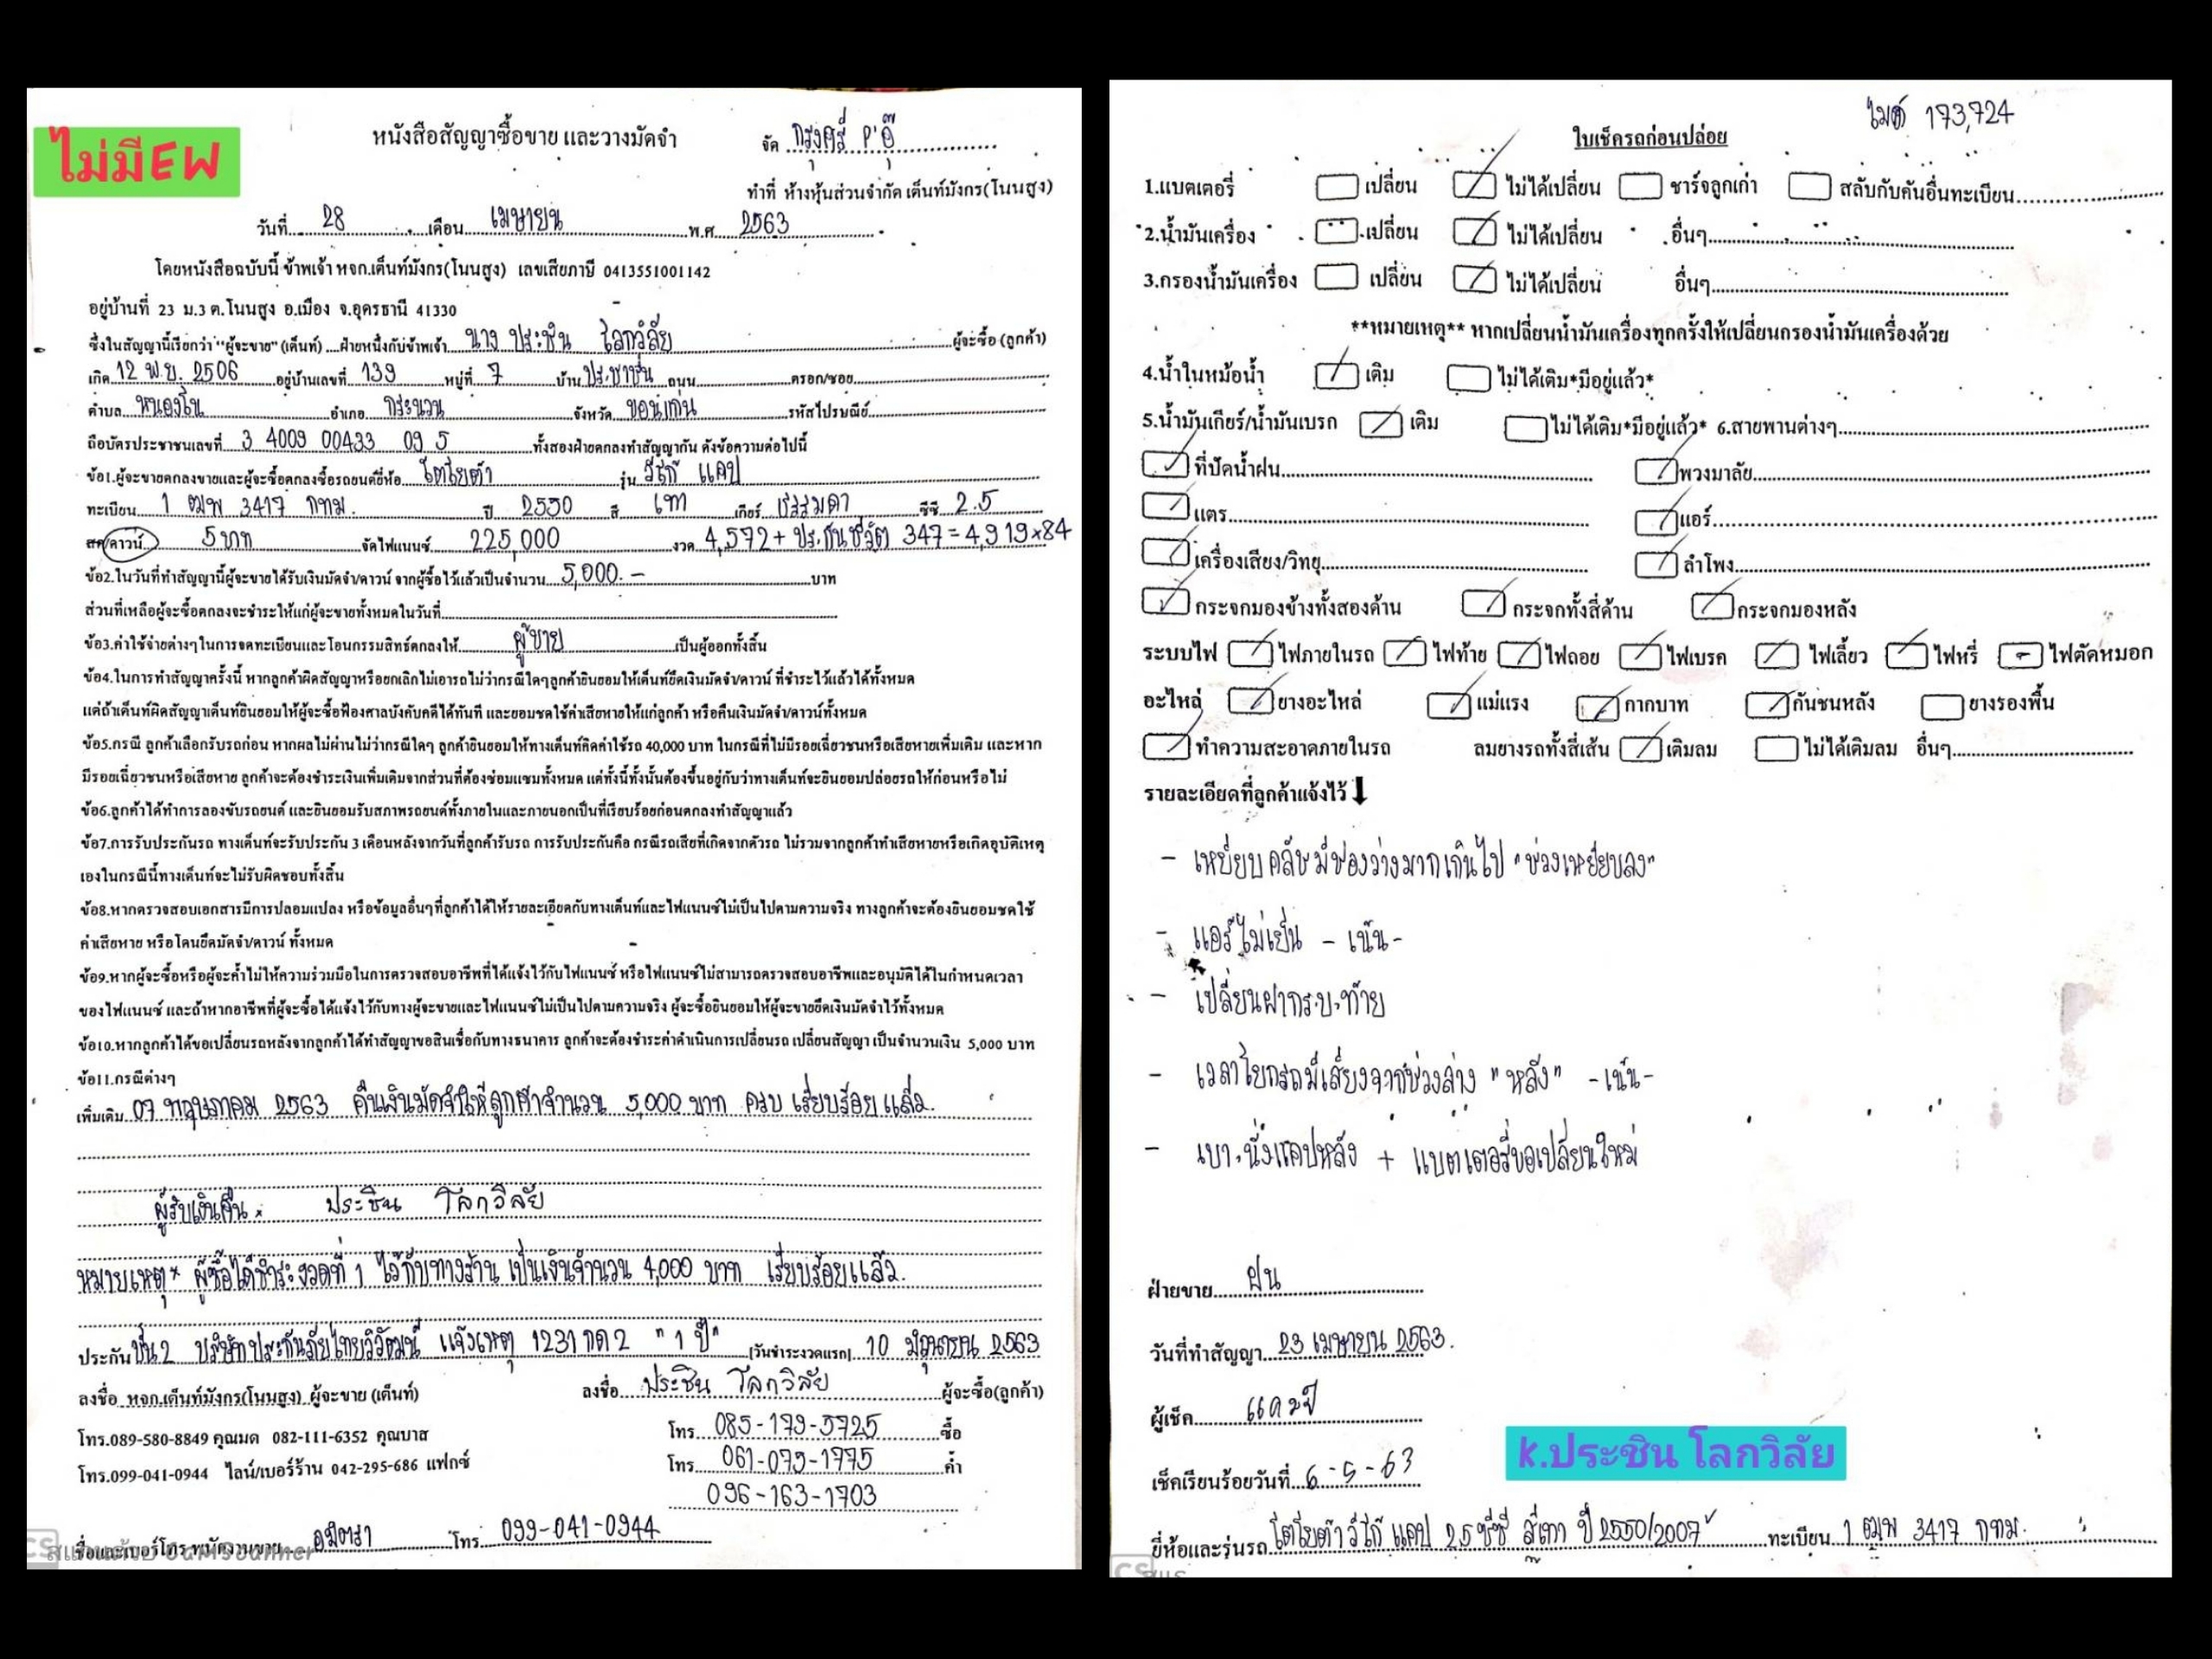 ไม่มีEW
หนังสือสัญญาซื้อขาย และวางมัดจำ
จัด กรุงศรี P'อุ๊
ทำที่ ห้างหุ้นส่วนจำกัด เต็นท์มังกร(โนนสูง)
วันที่ 28 เดือน เมษายน พ.ศ 2563
โดยหนังสือฉบับนี้ ข้าพเจ้า หจก.เต็นท์มังกร(โนนสูง) เลขเสียภาษี 0413551001142
อยู่บ้านที่ 23 ม.3 ต.โนนสูง อ.เมือง จ.อุดรธานี 41330
ซึ่งในสัญญานี้เรียกว่า "ผู้จะขาย" (เต็นท์) ....ฝ่ายหนึ่งกับข้าพเจ้า นาง ประชิน โลกวิลัย ผู้จะซื้อ (ลูกค้า)
เกิด 12 พ.ย. 2506 อยู่บ้านเลขที่ 139 หมู่ที่ 7 บ้าน ประชาชื่น ถนน ตรอก/ซอย
ตำบล หนองโน อำเภอ กระนวน จังหวัด ขอนแก่น รหัสไปรษณีย์
ถือบัตรประชาชนเลขที่ 3 4009 00433 09 5 ทั้งสองฝ่ายตกลงทำสัญญากัน ดังข้อความต่อไปนี้
ข้อ1.ผู้จะขายตกลงขายและผู้จะซื้อตกลงซื้อรถยนต์ยี่ห้อ โตโยต้า รุ่น วีโก้ แคป
ทะเบียน 1 ฒพ 3417 กทม. ปี 2550 สี เทา เกียร์ ธรรมดา ซีซี 2.5
สด/ดาวน์ 5 บาท จัดไฟแนนซ์ 225,000 งวด 4,572 + ประกันชีวิต 347 = 4,919 x 84
ข้อ2.ในวันที่ทำสัญญานี้ผู้จะขายได้รับเงินมัดจำ/ดาวน์ จากผู้ซื้อไว้แล้วเป็นจำนวน 5,000.- บาท
ส่วนที่เหลือผู้จะซื้อตกลงจะชำระให้แก่ผู้จะขายทั้งหมดในวันที่
ข้อ3.ค่าใช้จ่ายต่างๆในการจดทะเบียนและโอนกรรมสิทธ์ตกลงให้ ผู้ขาย เป็นผู้ออกทั้งสิ้น
ข้อ4.ในการทำสัญญาครั้งนี้ หากลูกค้าผิดสัญญาหรือยกเลิกไม่เอารถ ไม่ว่ากรณีใดๆลูกค้ายินยอมให้เต็นท์ยึดเงินมัดจำ/ดาวน์ ที่ชำระไว้แล้วได้ทั้งหมด
แต่ถ้าเต็นท์ผิดสัญญาเต็นท์ยินยอมให้ผู้จะซื้อฟ้องศาลบังคับคดีได้ทันที และยอมชดใช้ค่าเสียหายให้แก่ลูกค้า หรือคืนเงินมัดจำ/ดาวน์ทั้งหมด
ข้อ5.กรณี ลูกค้าเลือกรับรถก่อน หากผลไม่ผ่านไม่ว่ากรณีใดๆ ลูกค้ายินยอมให้ทางเต็นท์คิดค่าใช้รถ 40,000 บาท ในกรณีที่ไม่มีรอยเฉี่ยวชนหรือเสียหายเพิ่มเติม และหาก
มีรอยเฉี่ยวชนหรือเสียหาย ลูกค้าจะต้องชำระเงินเพิ่มเติมจากส่วนที่ต้องซ่อมแซมทั้งหมด แต่ทั้งนี้ทั้งนั้นต้องขึ้นอยู่กับว่าทางเต็นท์จะยินยอมปล่อยรถให้ก่อนหรือไม่
ข้อ6.ลูกค้าได้ทำการลองขับรถยนต์ และยินยอมรับสภาพรถยนต์ทั้งภายในและภายนอกเป็นที่เรียบร้อยก่อนตกลงทำสัญญาแล้ว
ข้อ7.การรับประกันรถ ทางเต็นท์จะรับประกัน 3 เดือนหลังจากวันที่ลูกค้ารับรถ การรับประกันคือ กรณีรถเสียที่เกิดจากตัวรถ ไม่รวมจากลูกค้าทำเสียหายหรือเกิดอุบัติเหตุ
เองในกรณีนี้ทางเต็นท์จะไม่รับผิดชอบทั้งสิ้น
ข้อ8.หากตรวจสอบเอกสารมีการปลอมแปลง หรือข้อมูลอื่นๆที่ลูกค้าได้ให้รายละเอียดกับทางเต็นท์และไฟแนนซ์ไม่เป็นไปตามความจริง ทางลูกค้าจะต้องยินยอมชดใช้
ค่าเสียหาย หรือโดนยึดมัดจำ/ดาวน์ ทั้งหมด
ข้อ9.หากผู้จะซื้อหรือผู้จะค้ำไม่ให้ความร่วมมือในการตรวจสอบอาชีพที่ได้แจ้งไว้กับไฟแนนซ์ หรือไฟแนนซ์ไม่สามารถตรวจสอบอาชีพและอนุมัติได้ในกำหนดเวลา
ของไฟแนนซ์ และถ้าหากอาชีพที่ผู้จะซื้อได้แจ้งไว้กับทางผู้จะขายและไฟแนนซ์ไม่เป็นไปตามความจริง ผู้จะซื้อยินยอมให้ผู้จะขายยึดเงินมัดจำไว้ทั้งหมด
ข้อ10.หากลูกค้าได้ขอเปลี่ยนรถหลังจากลูกค้าได้ทำสัญญาขอสินเชื่อกับทางธนาคาร ลูกค้าจะต้องชำระค่าดำเนินการเปลี่ยนรถ เปลี่ยนสัญญา เป็นจำนวนเงิน 5,000 บาท
ข้อ11.กรณีต่างๆ
เพิ่มเติม 07 พฤษภาคม 2563 คืนเงินมัดจำให้ลูกค้าจำนวน 5,000 บาท ครบ เรียบร้อย แล้ว.
ผู้รับเงินคืน : ประชิน โลกวิลัย
หมายเหตุ* ผู้ซื้อได้ชำระงวดที่ 1 ไว้กับทางร้าน เป็นเงินจำนวน 4,000 บาท เรียบร้อยแล้ว.
ประกัน ชั้น 2 บริษัทประกันภัยไทยวิวัฒน์ แจ้งเหตุ 1231 กด 2 "1 ปี" [วันชำระงวดแรก] 10 มิถุนายน 2563
ลงชื่อ หจก.เต็นท์มังกร(โนนสูง) ผู้จะขาย (เต็นท์) ลงชื่อ ประชิน โลกวิลัย ผู้จะซื้อ(ลูกค้า)
โทร.089-580-8849 คุณมด 082-111-6352 คุณบาส โทร. 085-179-5725 ซื้อ
โทร.099-041-0944 ไลน์/เบอร์ร้าน 042-295-686 แฟกซ์ โทร. 061-079-1775 ค้ำ
096-163-1703
ชื่อและเบอร์โทร พนักงานขาย โทร. 099-041-0944
ไมค์ 173,724
ใบเช็ครถก่อนปล่อย
1.แบตเตอรี่ เปลี่ยน ไม่ได้เปลี่ยน ชาร์จลูกเก่า สลับกับคันอื่นทะเบียน
2.น้ำมันเครื่อง เปลี่ยน ไม่ได้เปลี่ยน อื่นๆ
3.กรองน้ำมันเครื่อง เปลี่ยน ไม่ได้เปลี่ยน อื่นๆ
**หมายเหตุ** หากเปลี่ยนน้ำมันเครื่องทุกครั้งให้เปลี่ยนกรองน้ำมันเครื่องด้วย
4.น้ำในหม้อน้ำ เติม ไม่ได้เติม*มีอยู่แล้ว*
5.น้ำมันเกียร์/น้ำมันเบรก เติม ไม่ได้เติม*มีอยู่แล้ว* 6.สายพานต่างๆ
ที่ปัดน้ำฝน พวงมาลัย
แตร แอร์
เครื่องเสียง/วิทยุ ลำโพง
กระจกมองข้างทั้งสองด้าน กระจกทั้งสี่ด้าน กระจกมองหลัง
ระบบไฟ ไฟภายในรถ ไฟท้าย ไฟถอย ไฟเบรค ไฟเลี้ยว ไฟหรี่ ไฟตัดหมอก
อะไหล่ ยางอะไหล่ แม่แรง กากบาท กันชนหลัง ยางรองพื้น
ทำความสะอาดภายในรถ ลมยางรถทั้งสี่เส้น เติมลม ไม่ได้เติมลม อื่นๆ
รายละเอียดที่ลูกค้าแจ้งไว้
- เหยียบคลัชมีช่องว่างมากเกินไป "ช่วงเหยียบลง"
- แอร์ไม่เย็น - เน้น -
- เปลี่ยนฝากระบะท้าย
- เวลาโยกรถมีเสียงจากช่วงล่าง "หลัง" - เน้น -
- เบาะนั่งแคปหลัง + แบตเตอรี่ขอเปลี่ยนใหม่
ฝ่ายขาย ฝน
วันที่ทำสัญญา 23 เมษายน 2563.
ผู้เช็ค
เช็คเรียบร้อยวันที่ 6-5-63
K.ประชิน โลกวิลัย
ยี่ห้อและรุ่นรถ โตโยต้า วีโก้ แคป 2.5 ซีซี สีเทา ปี 2550/2007 ทะเบียน 1 ฒพ 3417 กทม.